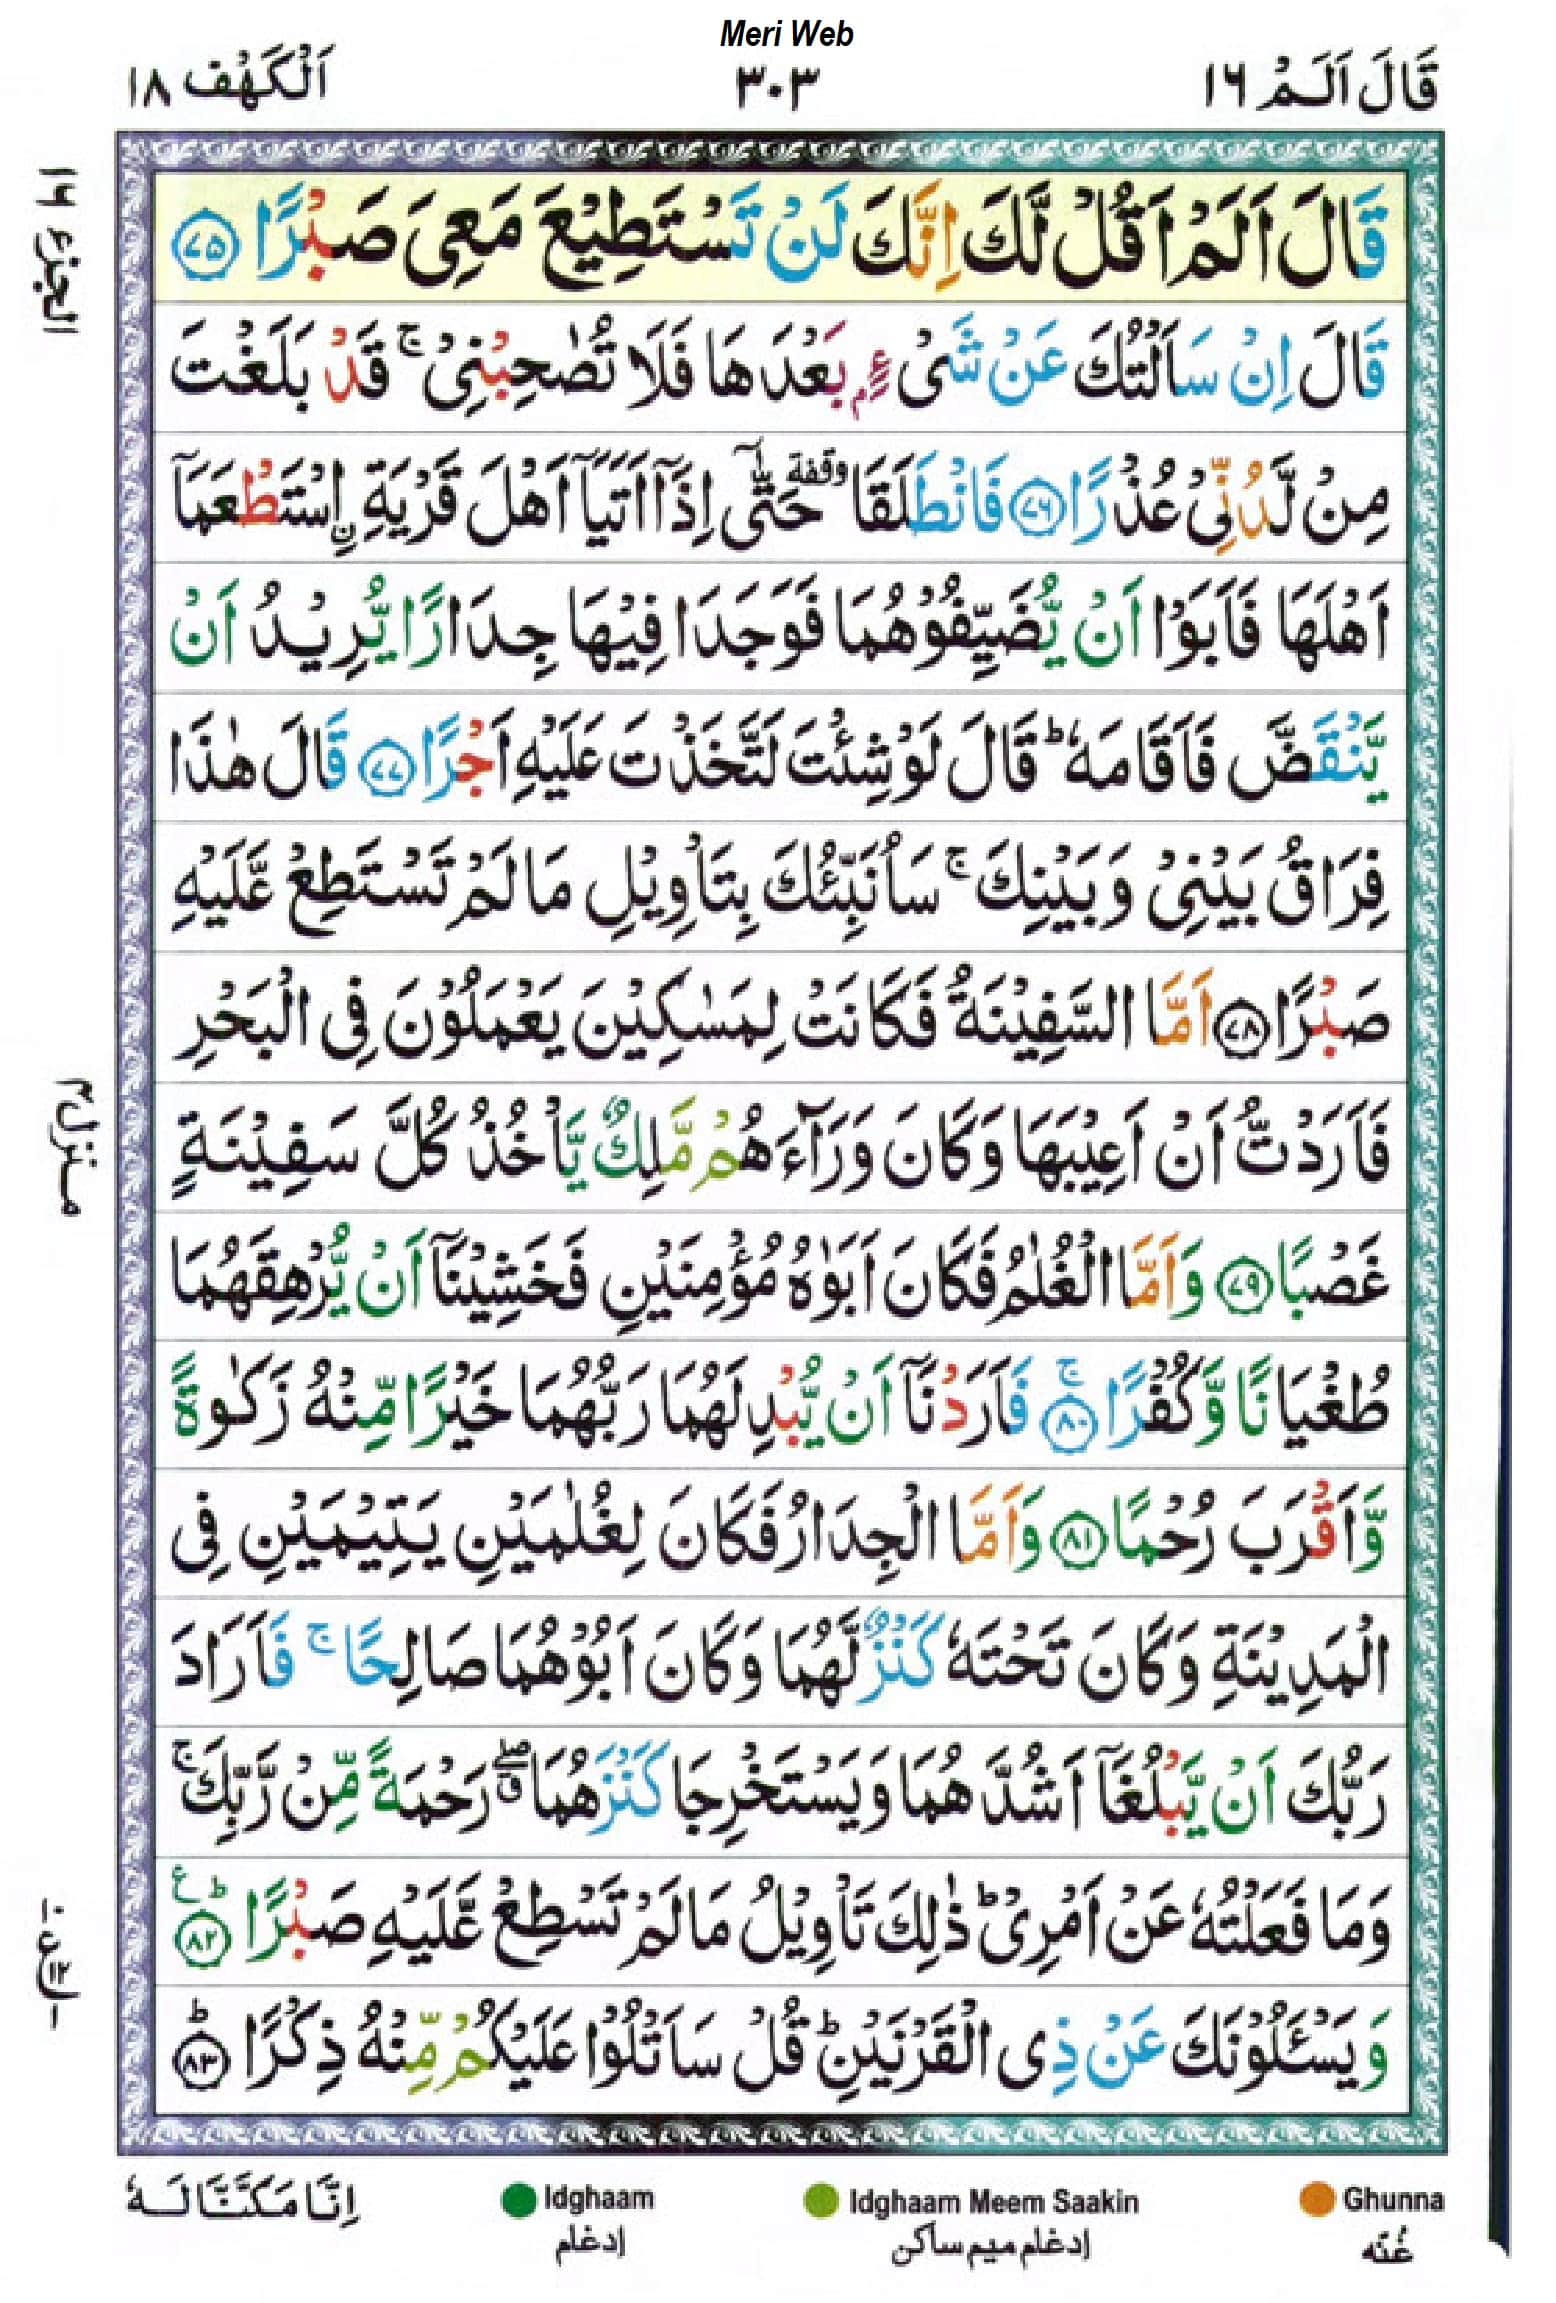 Meri Web
قَالَ اَلَمْ ١٦
٣٠٣
اَلْكَهْف ١٨
الجزء ١٦
قَالَ اَلَمْ اَقُلْ لَّكَ اِنَّكَ لَنْ تَسْتَطِيْعَ مَعِىَ صَبْرًا ۝٧٥
قَالَ اِنْ سَاَلْتُكَ عَنْ شَىْءٍۭ بَعْدَهَا فَلَا تُصٰحِبْنِىْ ۚ قَدْ بَلَغْتَ
مِنْ لَّدُنِّىْ عُذْرًا ۝٧٦ فَانْطَلَقَا وقفة حَتّٰٓى اِذَآ اَتَيَآ اَهْلَ قَرْيَةِ ۨاسْتَطْعَمَآ
اَهْلَهَا فَاَبَوْا اَنْ يُّضَيِّفُوْهُمَا فَوَجَدَا فِيْهَا جِدَارًا يُّرِيْدُ اَنْ
يَّنْقَضَّ فَاَقَامَهٗ ؕ قَالَ لَوْ شِئْتَ لَتَّخَذْتَ عَلَيْهِ اَجْرًا ۝٧٧ قَالَ هٰذَا
فِرَاقُ بَيْنِىْ وَبَيْنِكَ ۚ سَاُنَبِّئُكَ بِتَاْوِيْلِ مَا لَمْ تَسْتَطِعْ عَّلَيْهِ
صَبْرًا ۝٧٨ اَمَّا السَّفِيْنَةُ فَكَانَتْ لِمَسٰكِيْنَ يَعْمَلُوْنَ فِى الْبَحْرِ
فَاَرَدْتُّ اَنْ اَعِيْبَهَا وَكَانَ وَرَآءَهُمْ مَّلِكٌ يَّاْخُذُ كُلَّ سَفِيْنَةٍ
غَصْبًا ۝٧٩ وَاَمَّا الْغُلٰمُ فَكَانَ اَبَوٰهُ مُؤْمِنَيْنِ فَخَشِيْنَآ اَنْ يُّرْهِقَهُمَا
طُغْيَانًا وَّكُفْرًا ۚ ۝٨٠ فَاَرَدْنَآ اَنْ يُّبْدِلَهُمَا رَبُّهُمَا خَيْرًا مِّنْهُ زَكٰوةً
وَّاَقْرَبَ رُحْمًا ۝٨١ وَاَمَّا الْجِدَارُ فَكَانَ لِغُلٰمَيْنِ يَتِيْمَيْنِ فِى
الْمَدِيْنَةِ وَكَانَ تَحْتَهٗ كَنْزٌ لَّهُمَا وَكَانَ اَبُوْهُمَا صَالِحًا ۚ فَاَرَادَ
رَبُّكَ اَنْ يَّبْلُغَآ اَشُدَّهُمَا وَيَسْتَخْرِجَا كَنْزَهُمَا ۖق رَحْمَةً مِّنْ رَّبِّكَ ۚ
وَمَا فَعَلْتُهٗ عَنْ اَمْرِىْ ؕ ذٰلِكَ تَاْوِيْلُ مَا لَمْ تَسْطِعْ عَّلَيْهِ صَبْرًا ؕ ع ۝٨٢
وَيَسْـَٔلُوْنَكَ عَنْ ذِى الْقَرْنَيْنِ ؕ قُلْ سَاَتْلُوْا عَلَيْكُمْ مِّنْهُ ذِكْرًا ؕ ۝٨٣
منزل ٤
Ghunna
غُنّه
Idghaam Meem Saakin
إدغام ميم ساكن
Idghaam
إدغام
اِنَّا مَكَّنَّا لَهٗ